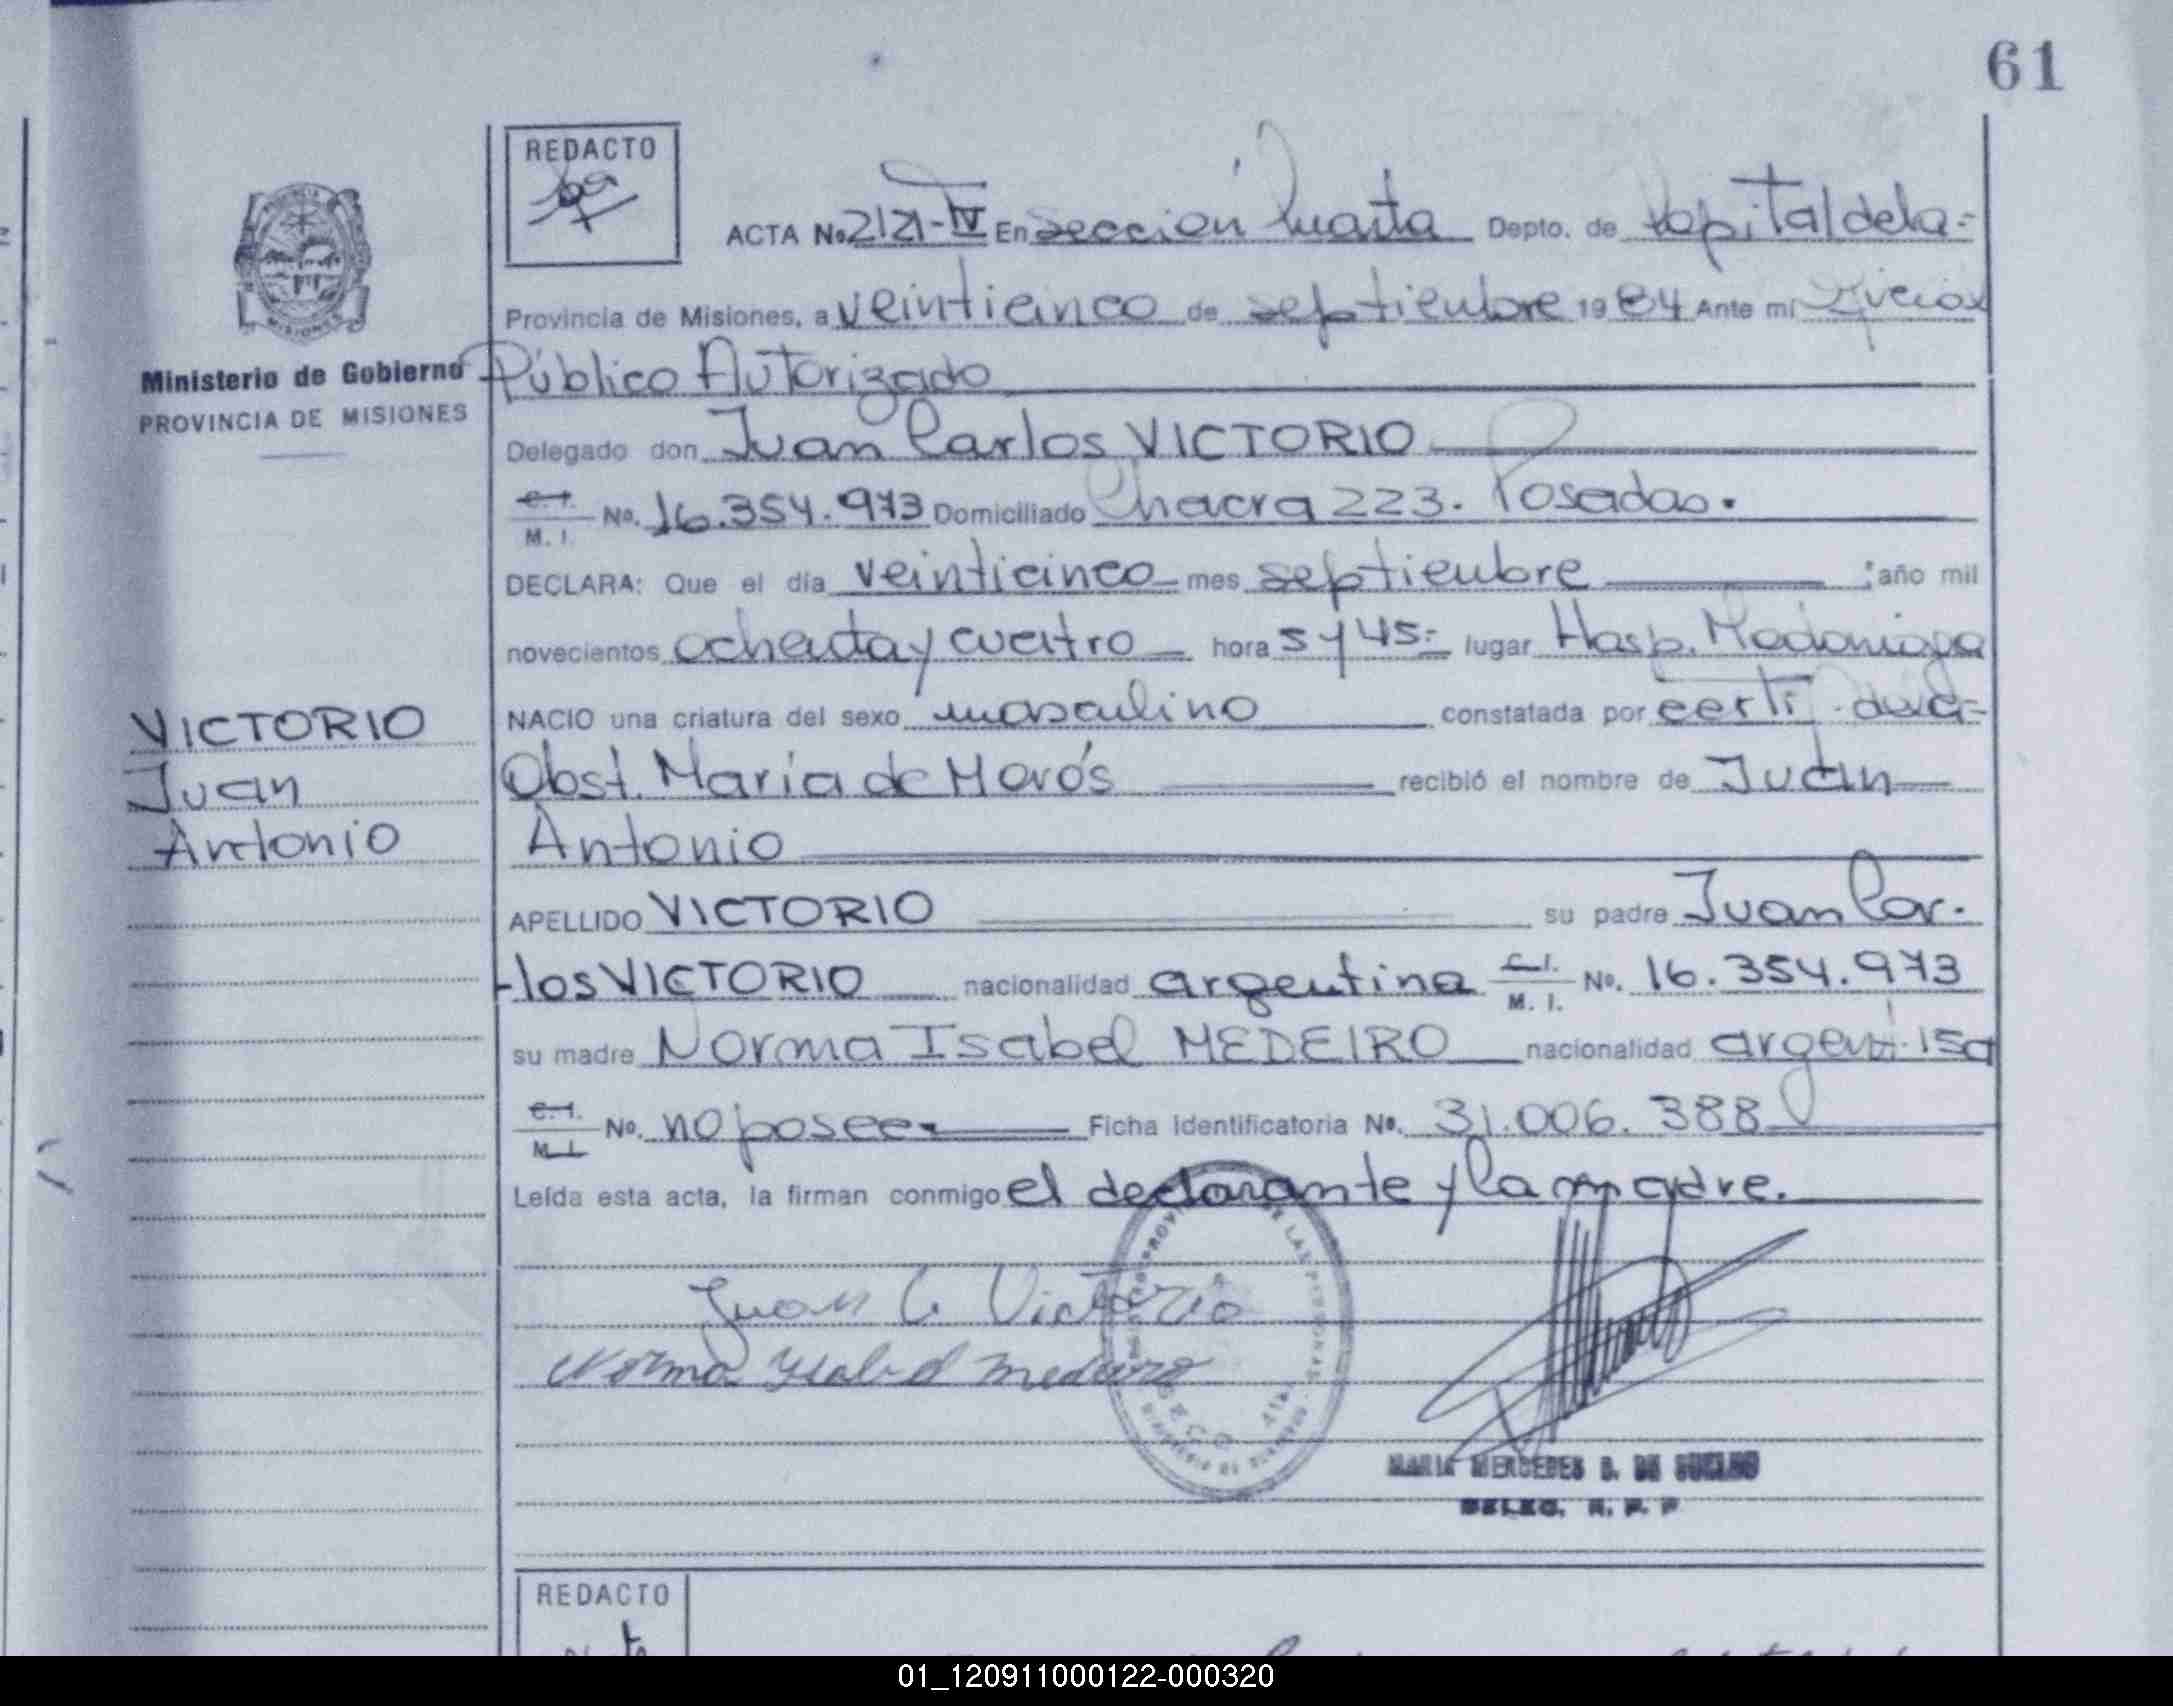 61
REDACTO
ACTA No 2121-IV En Sección Cuarta Depto. de Capital de la=
Provincia de Misiones, a veinticinco de septiembre 1984 Ante mí
Ministerio de Gobierno
PROVINCIA DE MISIONES
Público Autorizado
Delegado don Juan Carlos VICTORIO
C. I. M. I. No. 16.354.973 Domiciliado Chacra 223. Posadas.
DECLARA: Que el día veinticinco mes septiembre año mil
novecientos ochenta y cuatro hora 5 y 45= lugar Hosp. Madariaga
VICTORIO
Juan
Antonio
NACIO una criatura del sexo masculino constatada por certi
Obst. María de Morós recibió el nombre de Juan
Antonio
APELLIDO VICTORIO su padre Juan Car-
-los VICTORIO nacionalidad argentina C. I. M. I. No. 16.354.973
su madre Norma Isabel MEDEIRO nacionalidad argent. 15a
C. I. M. I. No. no posee Ficha Identificatoria No. 31.006.388
Leída esta acta, la firman conmigo el declarante y la madre.
Juan C Victorio
Norma Ysabel Medeiro
MARIA MERCEDES B. DE
DELEG. R. P. P
REDACTO
01_120911000122-000320